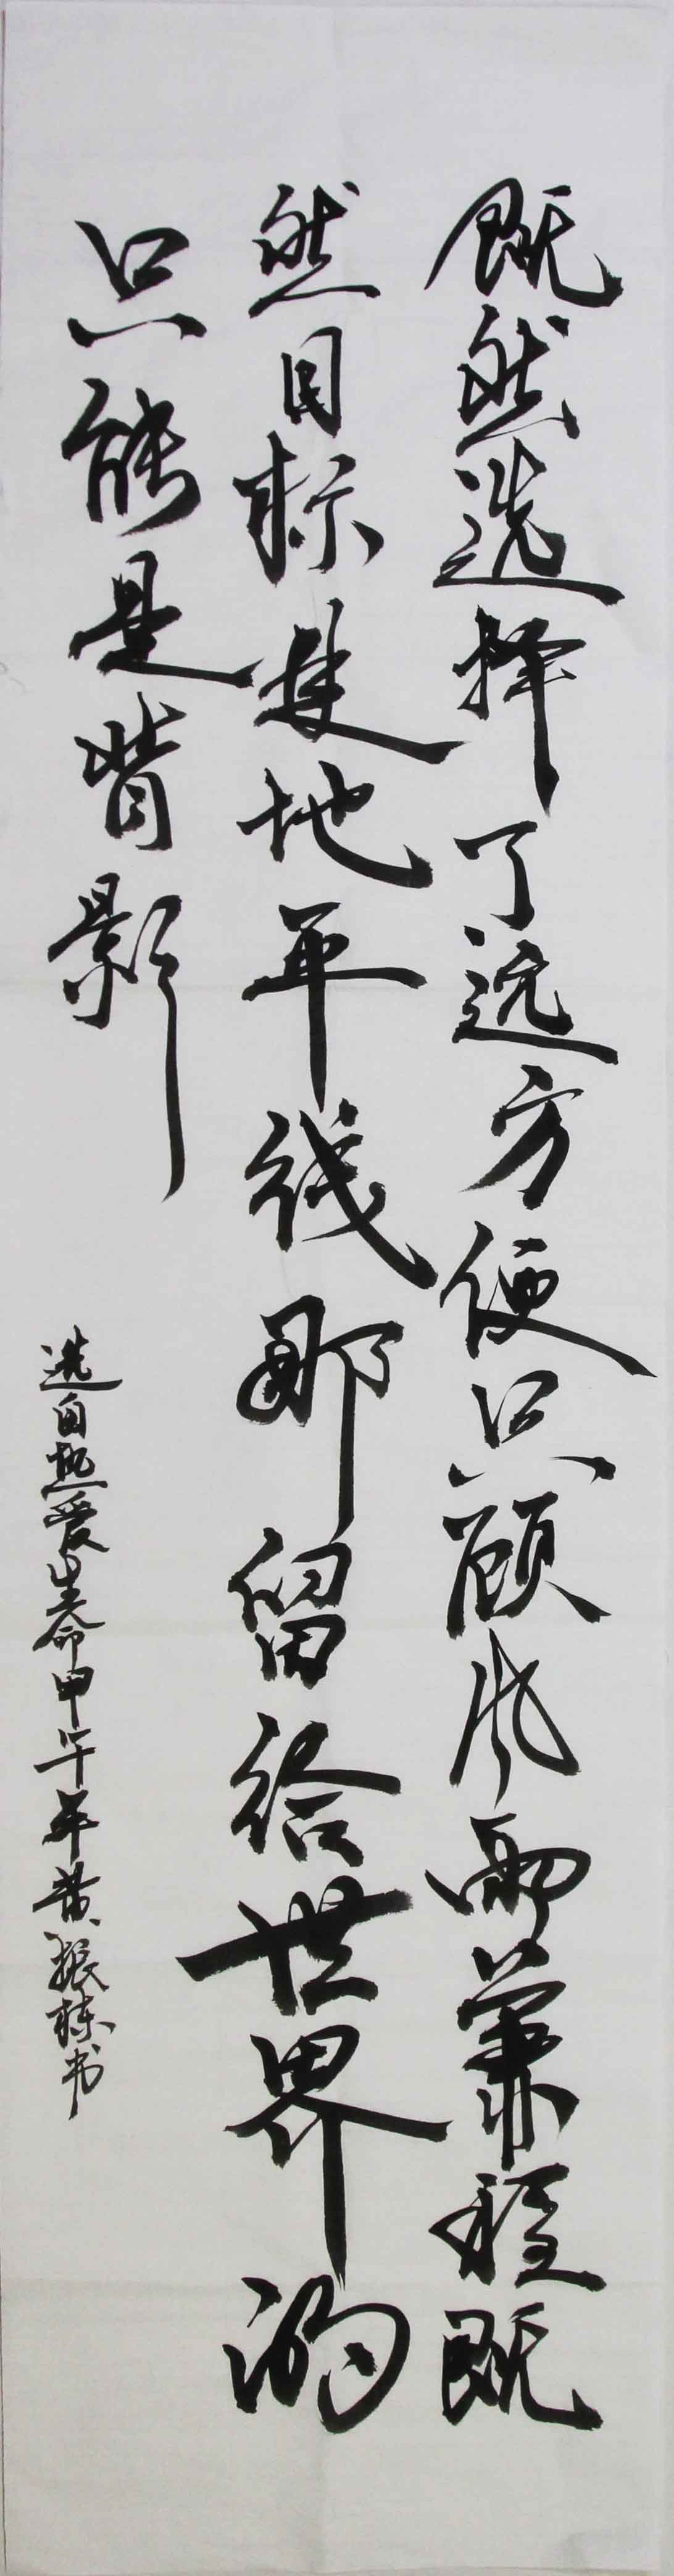 既然选择了远方便只顾风雨兼程既
然目标是地平线那留给世界的
只能是背影
选自热爱生命甲午年黄振栋书